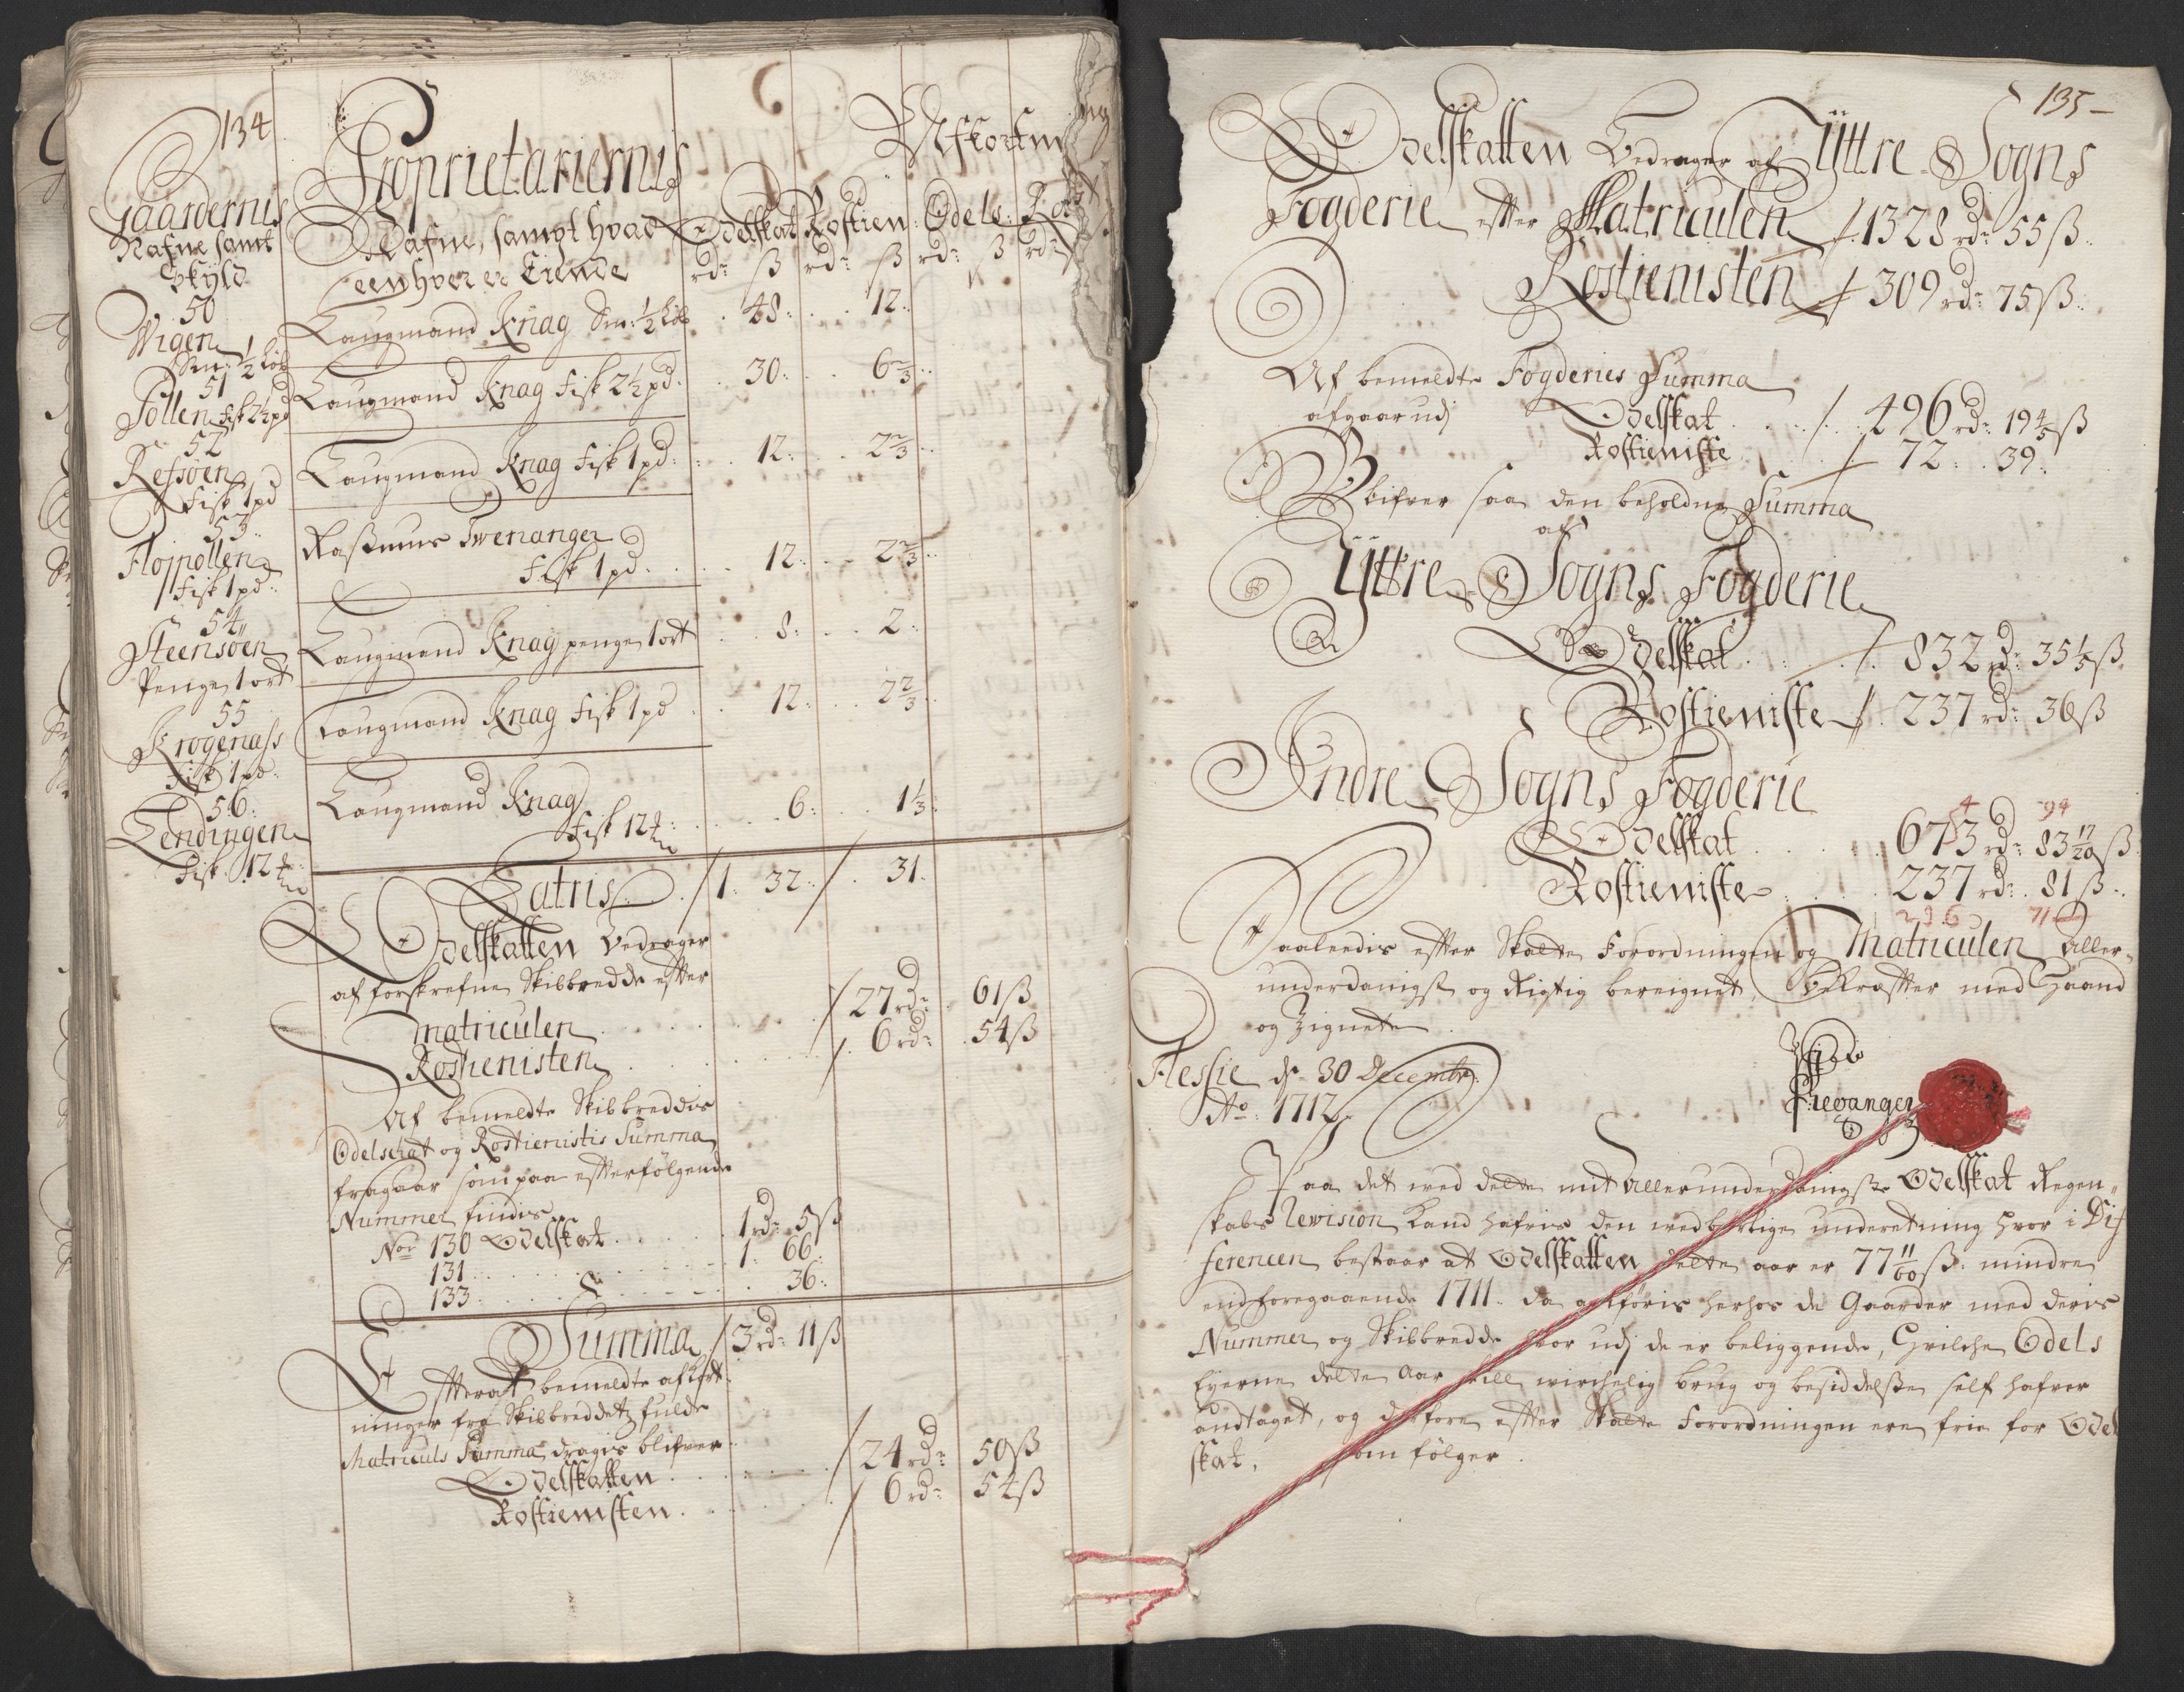 134
Proprietariernis
Afkortning
Gaardernis
Nafne samt
Skyld
Nafne, sampt hvad
eenhver er Eiende
Odelskat Rostien: Odels: Rost
rdr ß rdr ß rdr ß rdr
50
Wigen
Sm: 1/2 løb
Laugmand Knag Sm: 1/2 løb 48: 12:
51
Pollen fisk 2 1/2 pd
Laugmand Knag Fisk 2 1/2 pd: 30: 6 2/3
52
Refsøen
Fisk 1 pd
Laugmand Knag Fisk 1 pd: 12: 2 2/3
53
Fløjpollen
Fisk 1 pd:
Rasmus Twenanger
Fisk 1 pd. 12: 2 2/3
54
Steensøen
Penge 1 ort
Laugmand Knag penge 1 ort 8: 2:
55
Krogenass
Fisk 1 pd:
Laugmand Knag Fisk 1 pd 12: 2 2/3
56:
Lendingen
Fisk 12
Laugmand Knag
Fisk 12 6: 1 1/3:
Latris 1: 32: 31:
Odelskatten bedrager
af forskrefne Skibbredde efter
Matriculen 27 rdr 61 ß
Rostienisten 6 rdr 54 ß
Af bemeldte Skibbreddis
Odelschat og Rostienistis Summa
fragaar som paa efterfølgende
Nummer findis
Nor 130 Odelskat 1 rdr 5 ß
131 1: 66:
133 36:
Summa 3 rdr 11 ß
Efterat bemeldte afkort
ninger fra Skibbreddetz fulde
Matriculs Summa dragis blifver
Odelskatten 24 rdr 50 ß
Rostienisten 6 rdr 54 ß
135
Odelskatten bedrager af Yttre Sogns
Fogderie efter Matriculen 1328 rdr 55 ß
Rostienisten 309 rdr 75 ß
Af bemeldte Fogderies Summa
afgaar udj Odelskat 496 rdr 19 4/5 ß
Rostieniste 72: 39:
Blifver saa den beholdne Summa
af
Yttre Sogns Fogderie
Odelskat 832 rdr 35 1/5 ß
Rostieniste 237 rdr 36 ß
Indre Sogns Fogderie
4 94
Odelskat 673 rdr 83 17/20 ß
Rostieniste 237 rdr 81 ß
236 71
Saaleedis efter Skatte Forordningen og Matriculen aller-
underdanigst og Rigtig bereignet, Bekræfter med Haand
og Zignete
Flessie d: 30 Decembr:
Ao: 1712
Frevanger
Paa det ved dette mit allerunderdanigste Odelskat Regen-
skabs Revision kand hafvis den vedbørlige underetning hvor i Dif
ferencen bestaar at Odelskatten dette aar er 77 11/60 ß: mindre
end foregaaende 1711. da anføris herhos de Gaarder med deris
Nummer og Skibbredde hvor udj de er beliggende, hvilche Odels
Eyerne dette Aar till wirchelig brug og besiddelße self hafver
andtaget, og derfore efter Skatte Forordningen ere frie for Odel
skat, som følger.